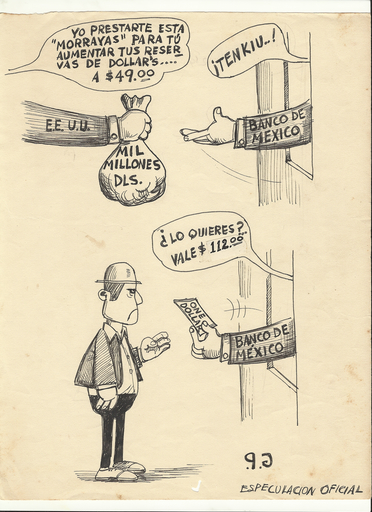 YO PRESTARTE ESTA
"MORRAYAS" PARA TÚ
AUMENTAR TUS RESER
VAS DE DOLLAR'S....
A $49.00
¡TENKIU..!
E.E.U.U.
MIL
MILLONES
DLS.
BANCO DE
MEXICO
¿LO QUIERES?
VALE $ 112.00
ONE
DOLLAR
BANCO DE
MÉXICO
ESPECULACION OFICIAL